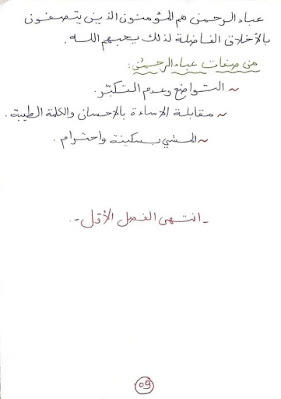 عباد الرحمن هم المؤمنون الذين يتصفون
بالأخلاق الفاضلة لذلك يحبهم الله.
من صفات عباد الرحمن:
~ التواضع وعدم التكبر.
~ مقابلة الاساءة بالإحسان والكلمة الطيبة.
~ المشي بسكينة واحترام.
- انتهى الفصل الأول -.
09